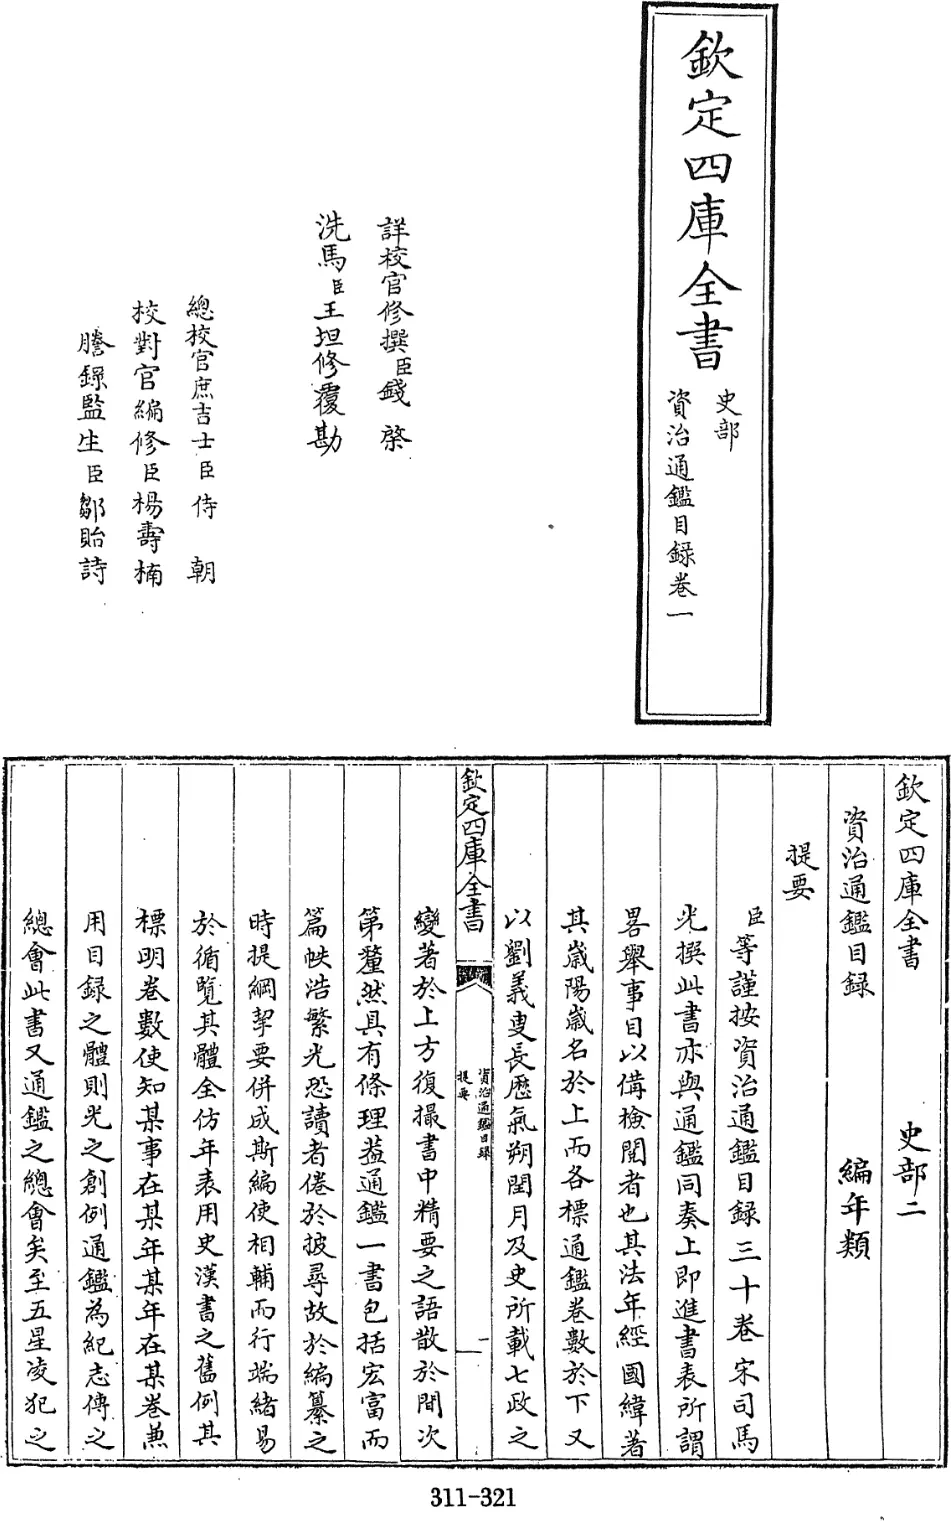 欽定四庫全書
史部
資治通鑑目録卷一
詳校官修撰臣錢棨
洗馬臣王坦修覆勘
總校官庶吉士臣侍朝
校對官編修臣楊壽楠
謄録監生臣鄒貽詩
欽定四庫全書 史部二
資治通鑑目録 編年類
提要
臣等謹按資治通鑑目録三十卷宋司馬
光撰此書亦與通鑑同奏上即進書表所謂
畧舉事目以備檢閱者也其法年經國緯著
其嵗陽嵗名於上而各標通鑑卷數於下又
以劉羲叟長厯氣朔閏月及史所載七政之
欽定四庫全書
資治通鑑目録
提要
一
變著於上方復撮書中精要之語散於間次
第釐然具有條理葢通鑑一書包括宏富而
篇帙浩繁光恐讀者倦於披尋故於編纂之
時提綱挈要併成斯編使相輔而行端緒易
於循覽其體全仿年表用史漢書之舊例其
標明卷數使知某事在某年某年在某卷兼
用目録之體則光之創例通鑑為紀志傳之
總會此書又通鑑之總會矣至五星凌犯之
311-321